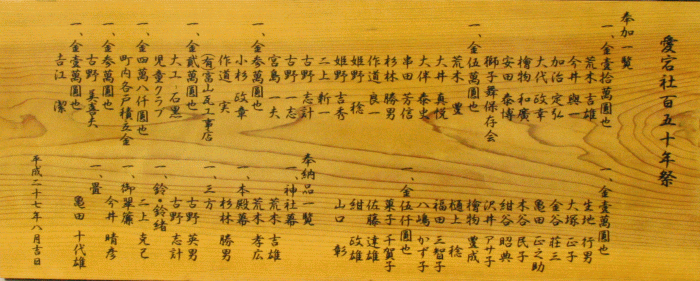 愛宕社百五十年祭
奉加一覧
一、金壹拾萬圓也
荒木吉雄
今井與一
加治定弘
大代政章
檜物和廣
安田泰博
獅子舞保存会
一、金伍萬圓也
荒木豊
大井真悦
大伴泰史
串田芳信
杉林勝男
作道良一
姫野稔
姫野吉秀
二上新一
古野志計
古野志
宮島一夫
一、金参萬圓也
小杉政章
作道実
一、金貮萬圓也
(有)富山瓦工事店
大工・石黒
児童クラブ
一、金四萬八仟圓也
町内各戸積立金
一、金参萬圓也
古野美喜夫
一、金壹萬圓也
吉江潔
一、金壹萬圓也
生地行男
大塚正子
金谷荘三
亀田正之助
木谷民子
紺谷昭典
沢井アサ子
檜物豊成
樋上稔
福田三智子
八嶋かず子
一、金伍仟圓也
菓子千賀子
佐藤達雄
紺政雄
山口彰
奉納品一覧
一、神社幕
荒木吉雄
荒木孝広
一、本殿幕
杉林勝男
一、三方
古野英男
古野志計
一、鈴・鈴緒
二上克己
一、御翠簾
今井晴彦
一、畳
亀田十代雄
平成二十七年八月吉日